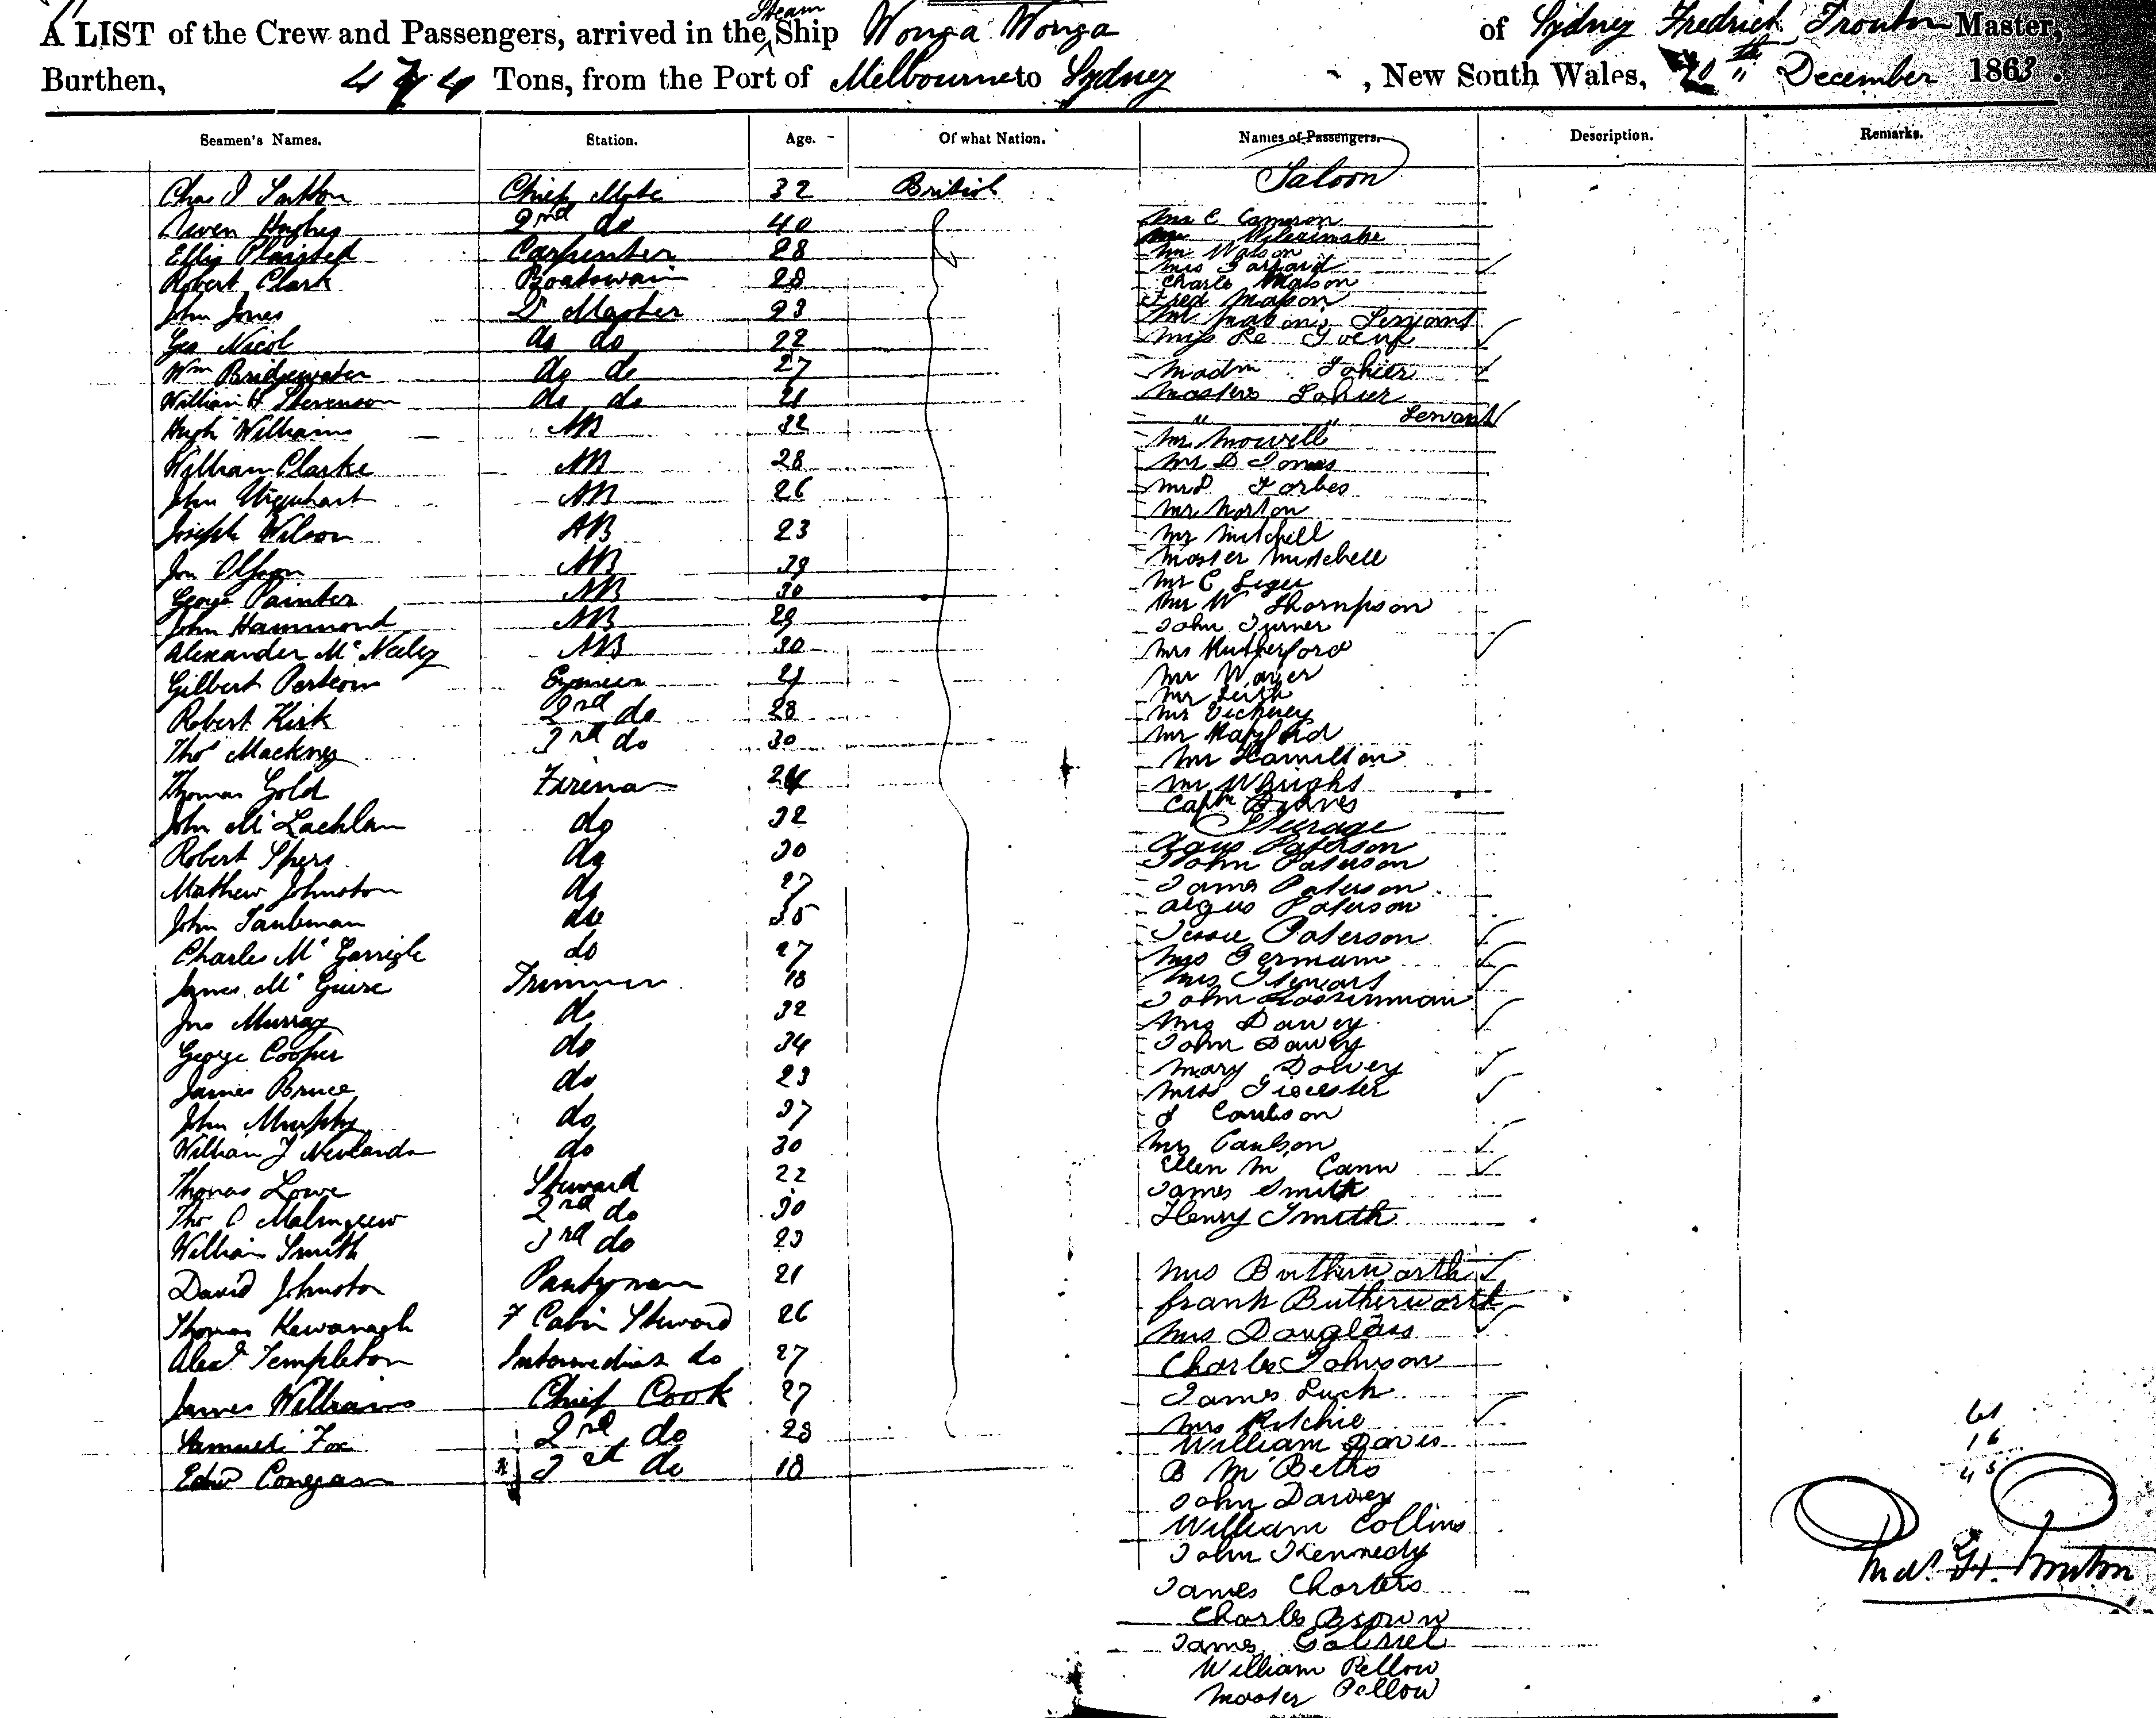 A LIST of the Crew and Passengers, arrived in the Steam Ship Wonga Wonga of Sydney Fredrick Trouton Master,
Burthen, 474 Tons, from the Port of Melbourne to Sydney, New South Wales, 20th December 1863.
Seamen's Names. Station. Age. Of what Nation. Names of Passengers. Description. Remarks.
Saloon
Chas Sutton Chief Mate 32 British
Owen Hughes 2nd do 40 C Cameron
Plaisted Carpenter 28
Mr Watson
Robert Clark Boatswain 28 Charles Mason
Fred Mason
John Jones Master 23 Servant
Geo Nicol do do 22 Miss Le
Wm Bridgewater do do 27 Madm
William H Stevenson do do 21 Masters
" " Servant
Hugh Williams AB 32 Mr Mowell
William Clarke AB 28 Mr D Jones
John Urquhart AB 26 Forbes
Mr Norton
Joseph Wilson AB 23 Mr Mitchell
AB 39 Master Mitchell
Mr C
George Painter AB 30 Mr W Thompson
John Hammond AB 29 John Turner
Alexander McNeiley AB 30 Mrs Rutherford
Gilbert 
Robert Kirk 2nd do 28 Mr Vickerey
Thos Mackney 3rd do 30 Mr
Mr Hamilton
Thomas Gold Fireman 24 Mr Wright
Captn
John McLachlan do 32 Steerage
Robert Spers do 30 Paterson
John Paterson
Mathew Johnston do 27 James Paterson
John Taubman do 35 Paterson
Jessie Paterson
Charles McGarrigle do 27 Mrs Germain
James McGuire Trimmer 18 Mrs Stewart
John
Jno Murray do 32 Mrs Davey
George Cooper do 34 John Davey
Mary Davey
James Bruce do 23 Miss
John Murphy do 37 J Coulson
William J Newlands do 30 Mrs Coulson
Ellen McCann
Thomas Lowe Steward 22 James Smith
Thos 2nd do 30 Henry Smith
William Smith 3rd do 23
David Johnston Pantryman 21 Mrs Butherworth
Thomas Kewanagh F Cabin Steward 26 Frank Butherworth
Mrs Douglass
Alexr Templeton Intermediate do 27 Charles Johnson
James Williams Chief Cook 27 James Luck
Mrs Ritchie
Samuel Fox 2nd do 28 William Davis
Edwd 3rd do 18 B McBeths
John Davey
William Collins
John Kennedy
James Charters
Charles Brown
James Gabriel
William Pellow
Master Pellow
61
16
45